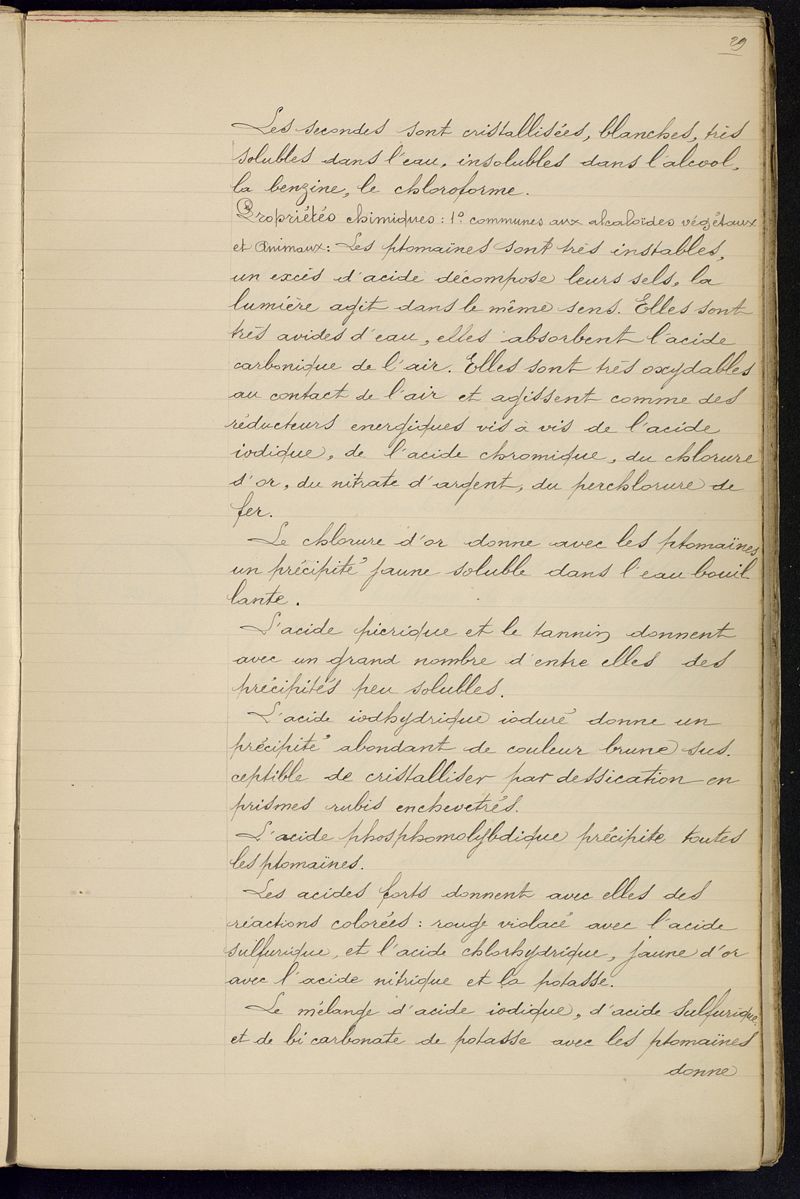 29
Les secondes sont cristallisées, blanches, très
solubles dans l'eau, insolubles dans l'alcool,
la benzine, le chloroforme.
Propriétés chimiques : 1º communes aux alcaloïdes végétaux
et animaux : Les ptomaïnes sont très instables,
un excès d'acide décompose leurs sels, la
lumière agit dans le même sens. Elles sont
très avides d'eau, elles absorbent l'acide
carbonique de l'air. Elles sont très oxydables
au contact de l'air et agissent comme des
réducteurs energiques vis à vis de l'acide
iodique, de l'acide chromique, du chlorure
d'or, du nitrate d'argent, du perchlorure de
fer.
Le chlorure d'or donne avec les ptomaïnes
un précipité jaune soluble dans l'eau bouil-
lante.
L'acide picrique et le tannin donnent
avec un grand nombre d'entre elles des
précipités peu solubles.
L'acide iodhydrique ioduré donne un
précipité abondant de couleur brune sus-
ceptible de cristalliser par dessication en
prismes rubis enchevetrés.
L'acide phosphomolybdique précipite toutes
les ptomaïnes.
Les acides forts donnent avec elles des
réactions colorées : rouge violacé avec l'acide
sulfurique, et l'acide chlorhydrique, jaune d'or
avec l'acide nitrique et la potasse.
Le mélange d'acide iodique, d'acide sulfurique,
et de bi carbonate de potasse avec les ptomaïnes
donne